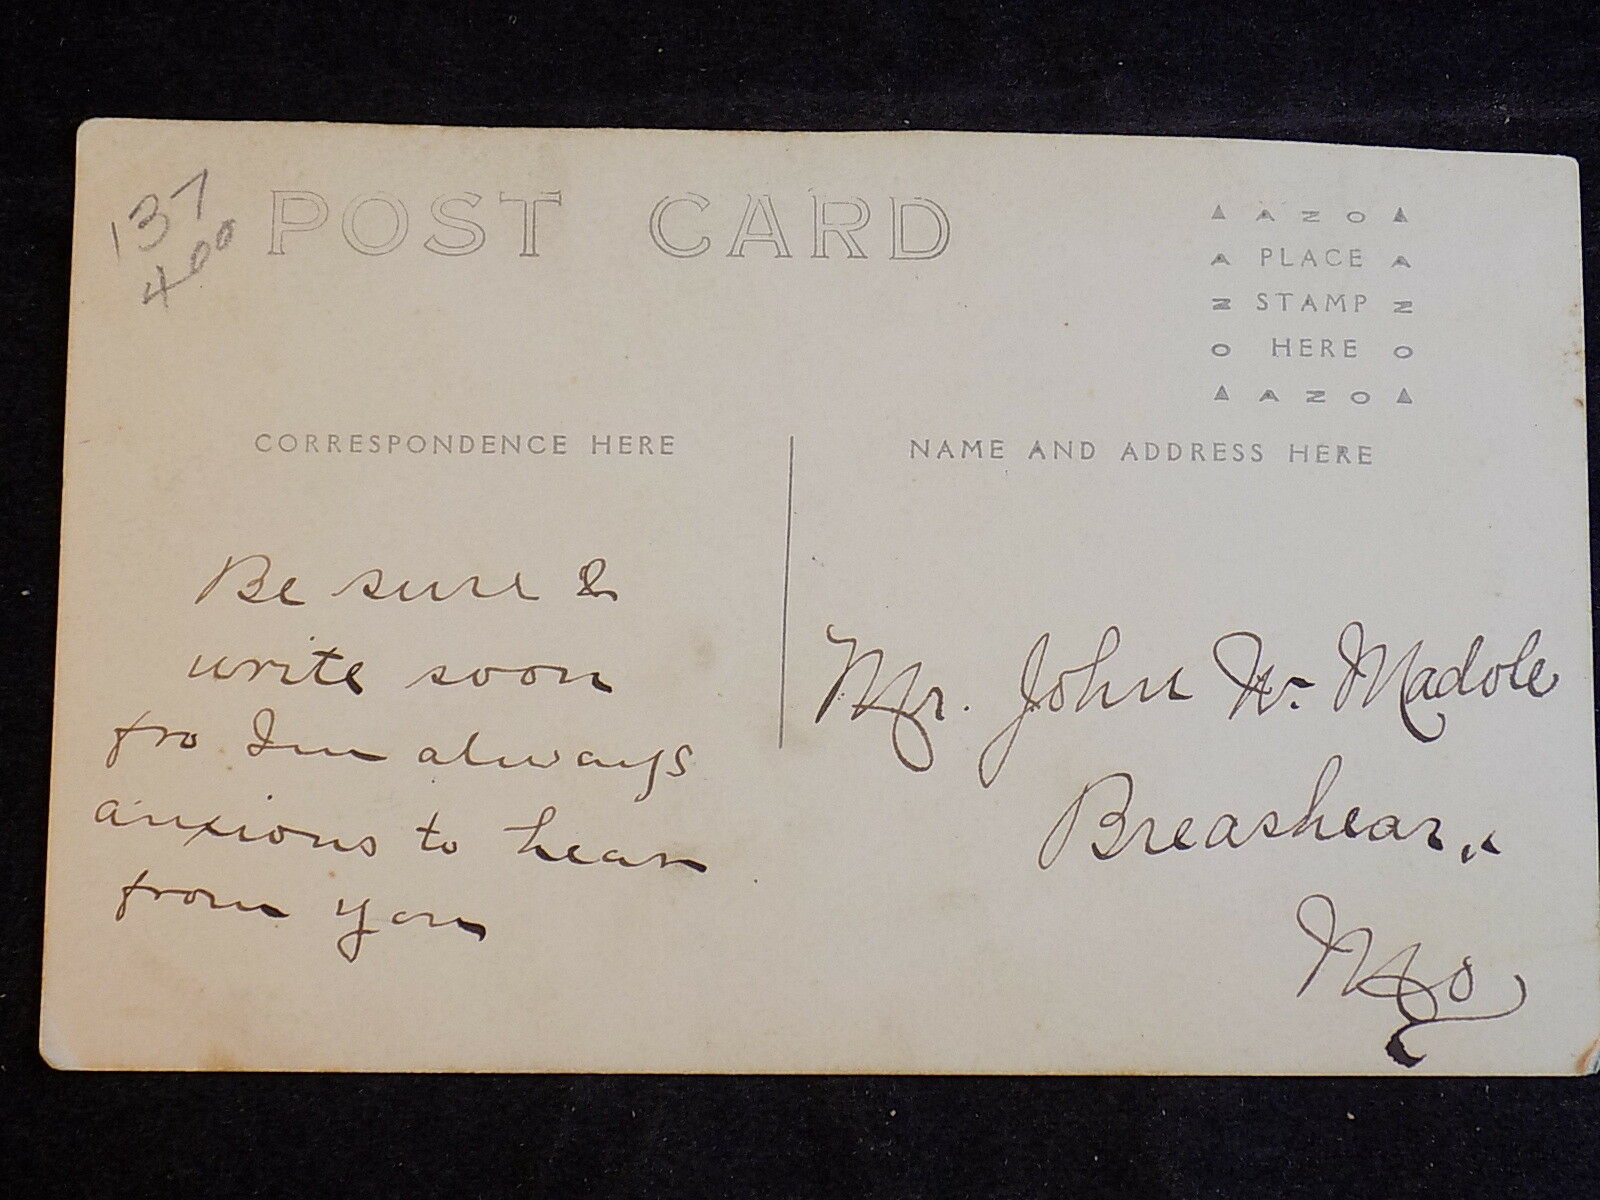 137
400
POST CARD
▲ A Z O ▲
A PLACE A
N STAMP N
O HERE O
▲ A Z O ▲
CORRESPONDENCE HERE
NAME AND ADDRESS HERE
Be sure &
write soon
fro Im always
anxious to hear
from you
Mr. John W. Madole
Breashear,
Mo